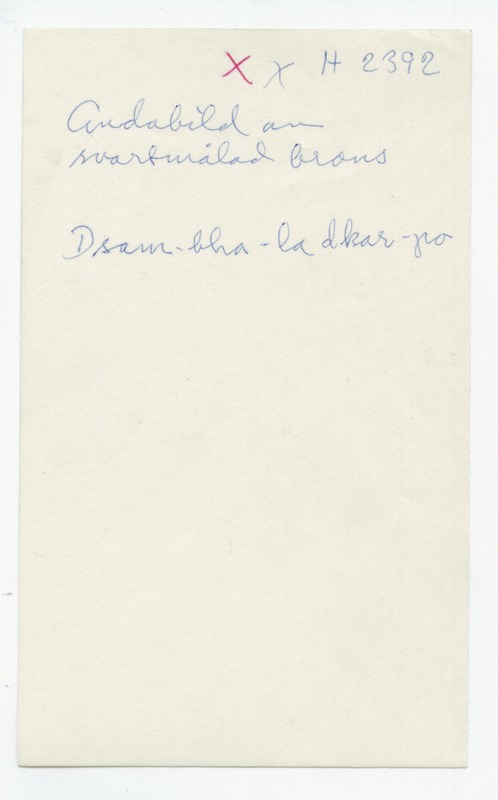 X X H 2392
Gudabild av
svartmålad brons
Dsam-bha-la dkar-po